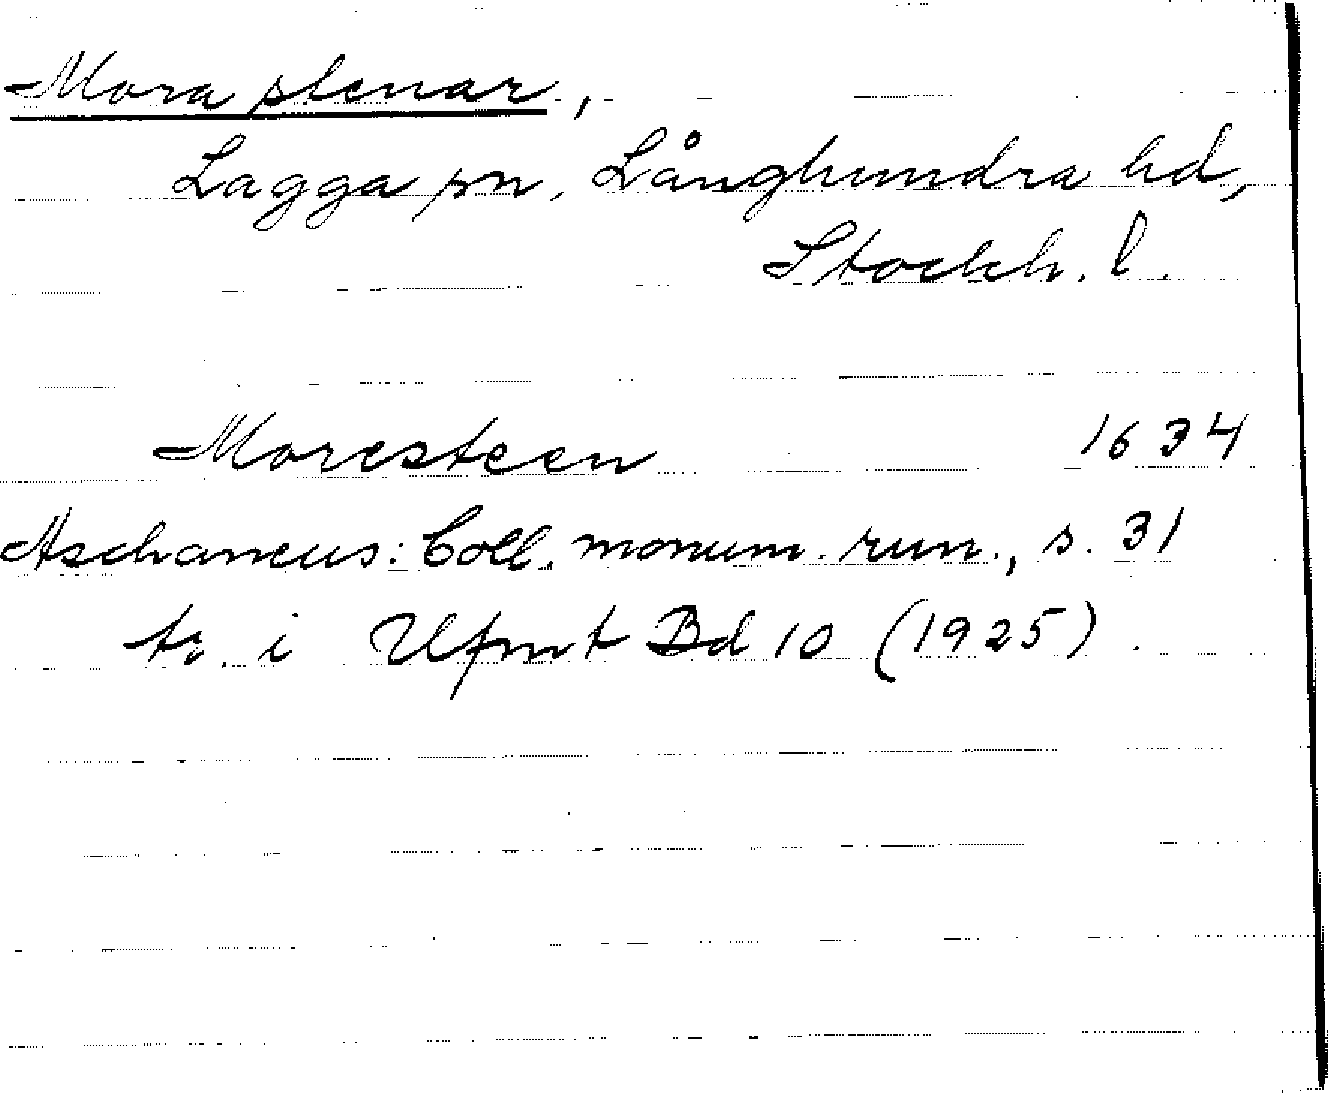 Mora stenar,
Lagga sn, Långhundra hd,
Stockh. l.
Moresteen 1634
Aschaneus: Coll. monum. run., s. 31
tr. i Ufmt Bd 10 (1925).